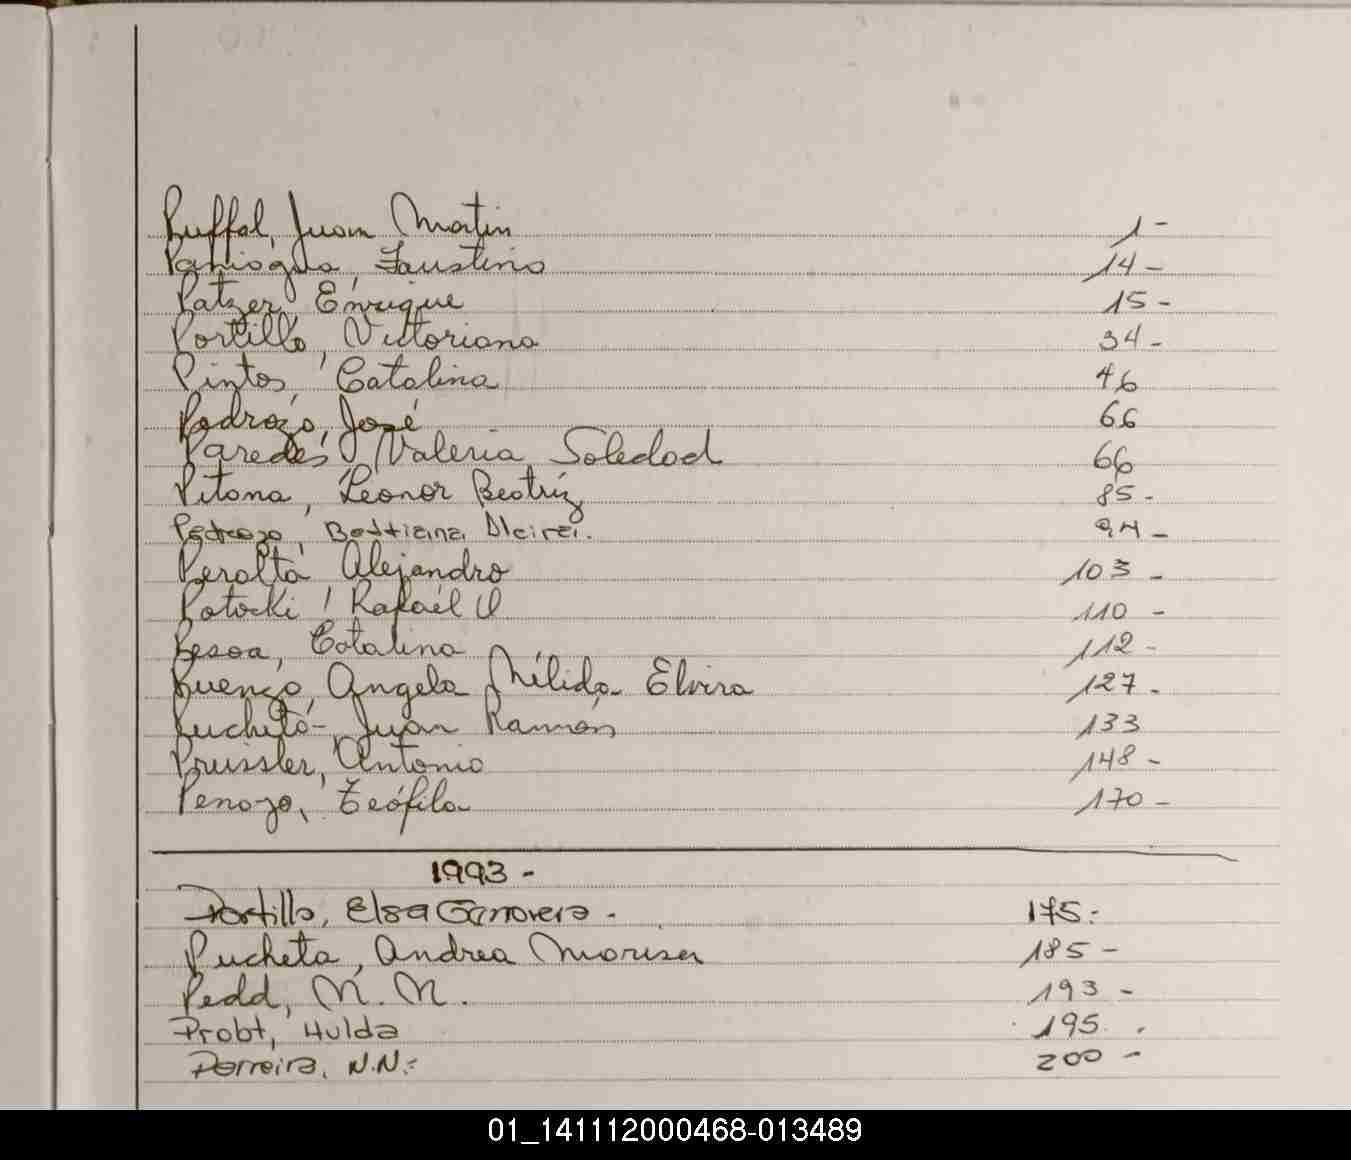 Puffal, Juan Martin 1-
Paniogua, Faustino 14-
Patzer, Enrique 15-
Portillo, Victoriano 34-
Pintos, Catalina 46
Pedrozo, José 66
Paredes, Valeria Soledad 66
Pitana, Leonor Beatriz 85-
Pedrozo, Bastiana Alcira. 94-
Peralta Alejandro 103-
Potocki, Rafaél U 110-
Pesoa, Catalina 112-
Puenzo, Angela Nélida Elvira 127-
Puchetá- Juan Ramón 133
Preissler, Antonio 148-
Penozo, Teófila 170-
1993-
Portillo, Elsa Genoveva. 175:
Pucheta, Andrea Marisa 185-
Pedd, N. N. 193-
Probt, Hulda 195.
Perreira, N.N:- 200-
01_141112000468-013489